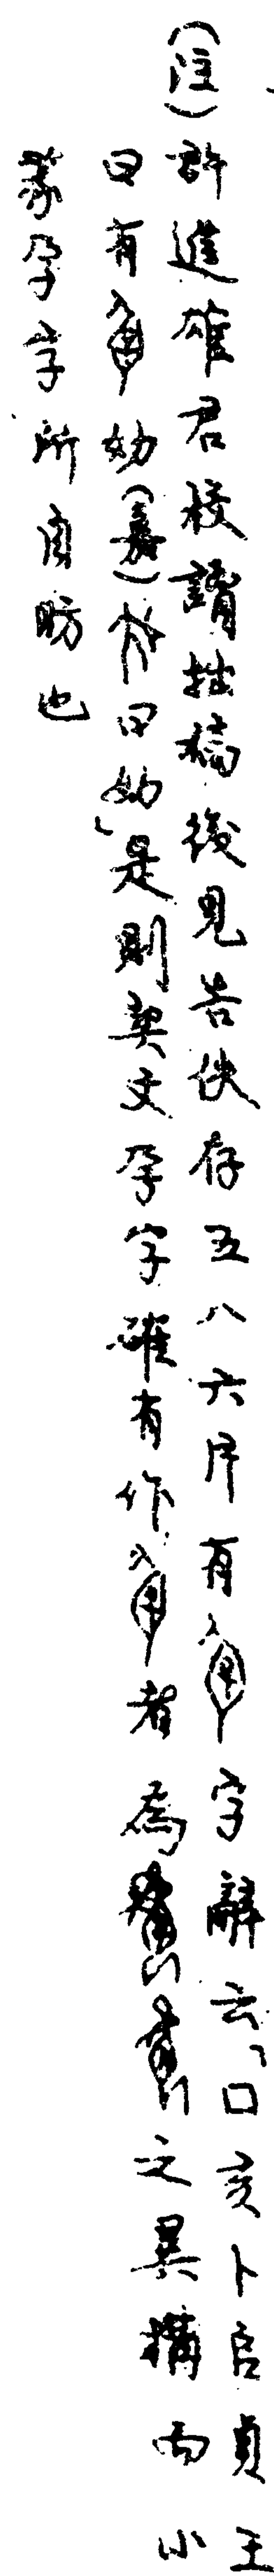 (註)許進雄君校讀拙稿後見告佚存五八六片有字辭云「口亥卜𠂤貞王
曰有妫(嘉)㞢曰妫」是則契文孕字確有作者為之異構而小
篆孕字所自昉也